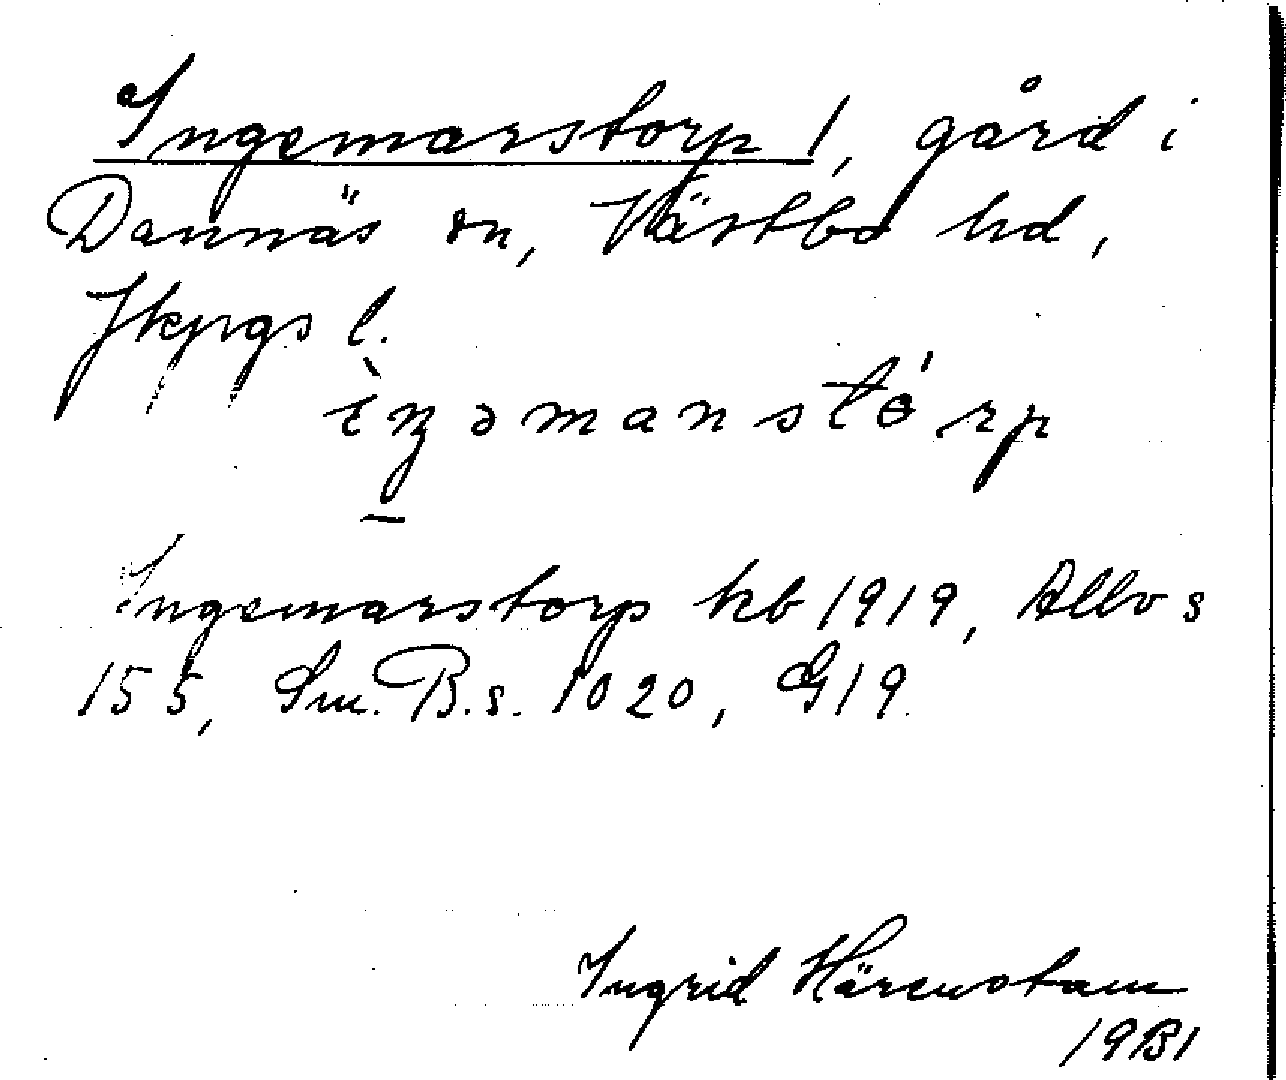 Ingemarstorp 1, gård i
Dannäs sn, Västbo hd,
Jkpgs l.
Ingemarstorp kb 1919, Allvs
155, Sm. B. s. 1020, G19.
Ingrid Härenstam
1931